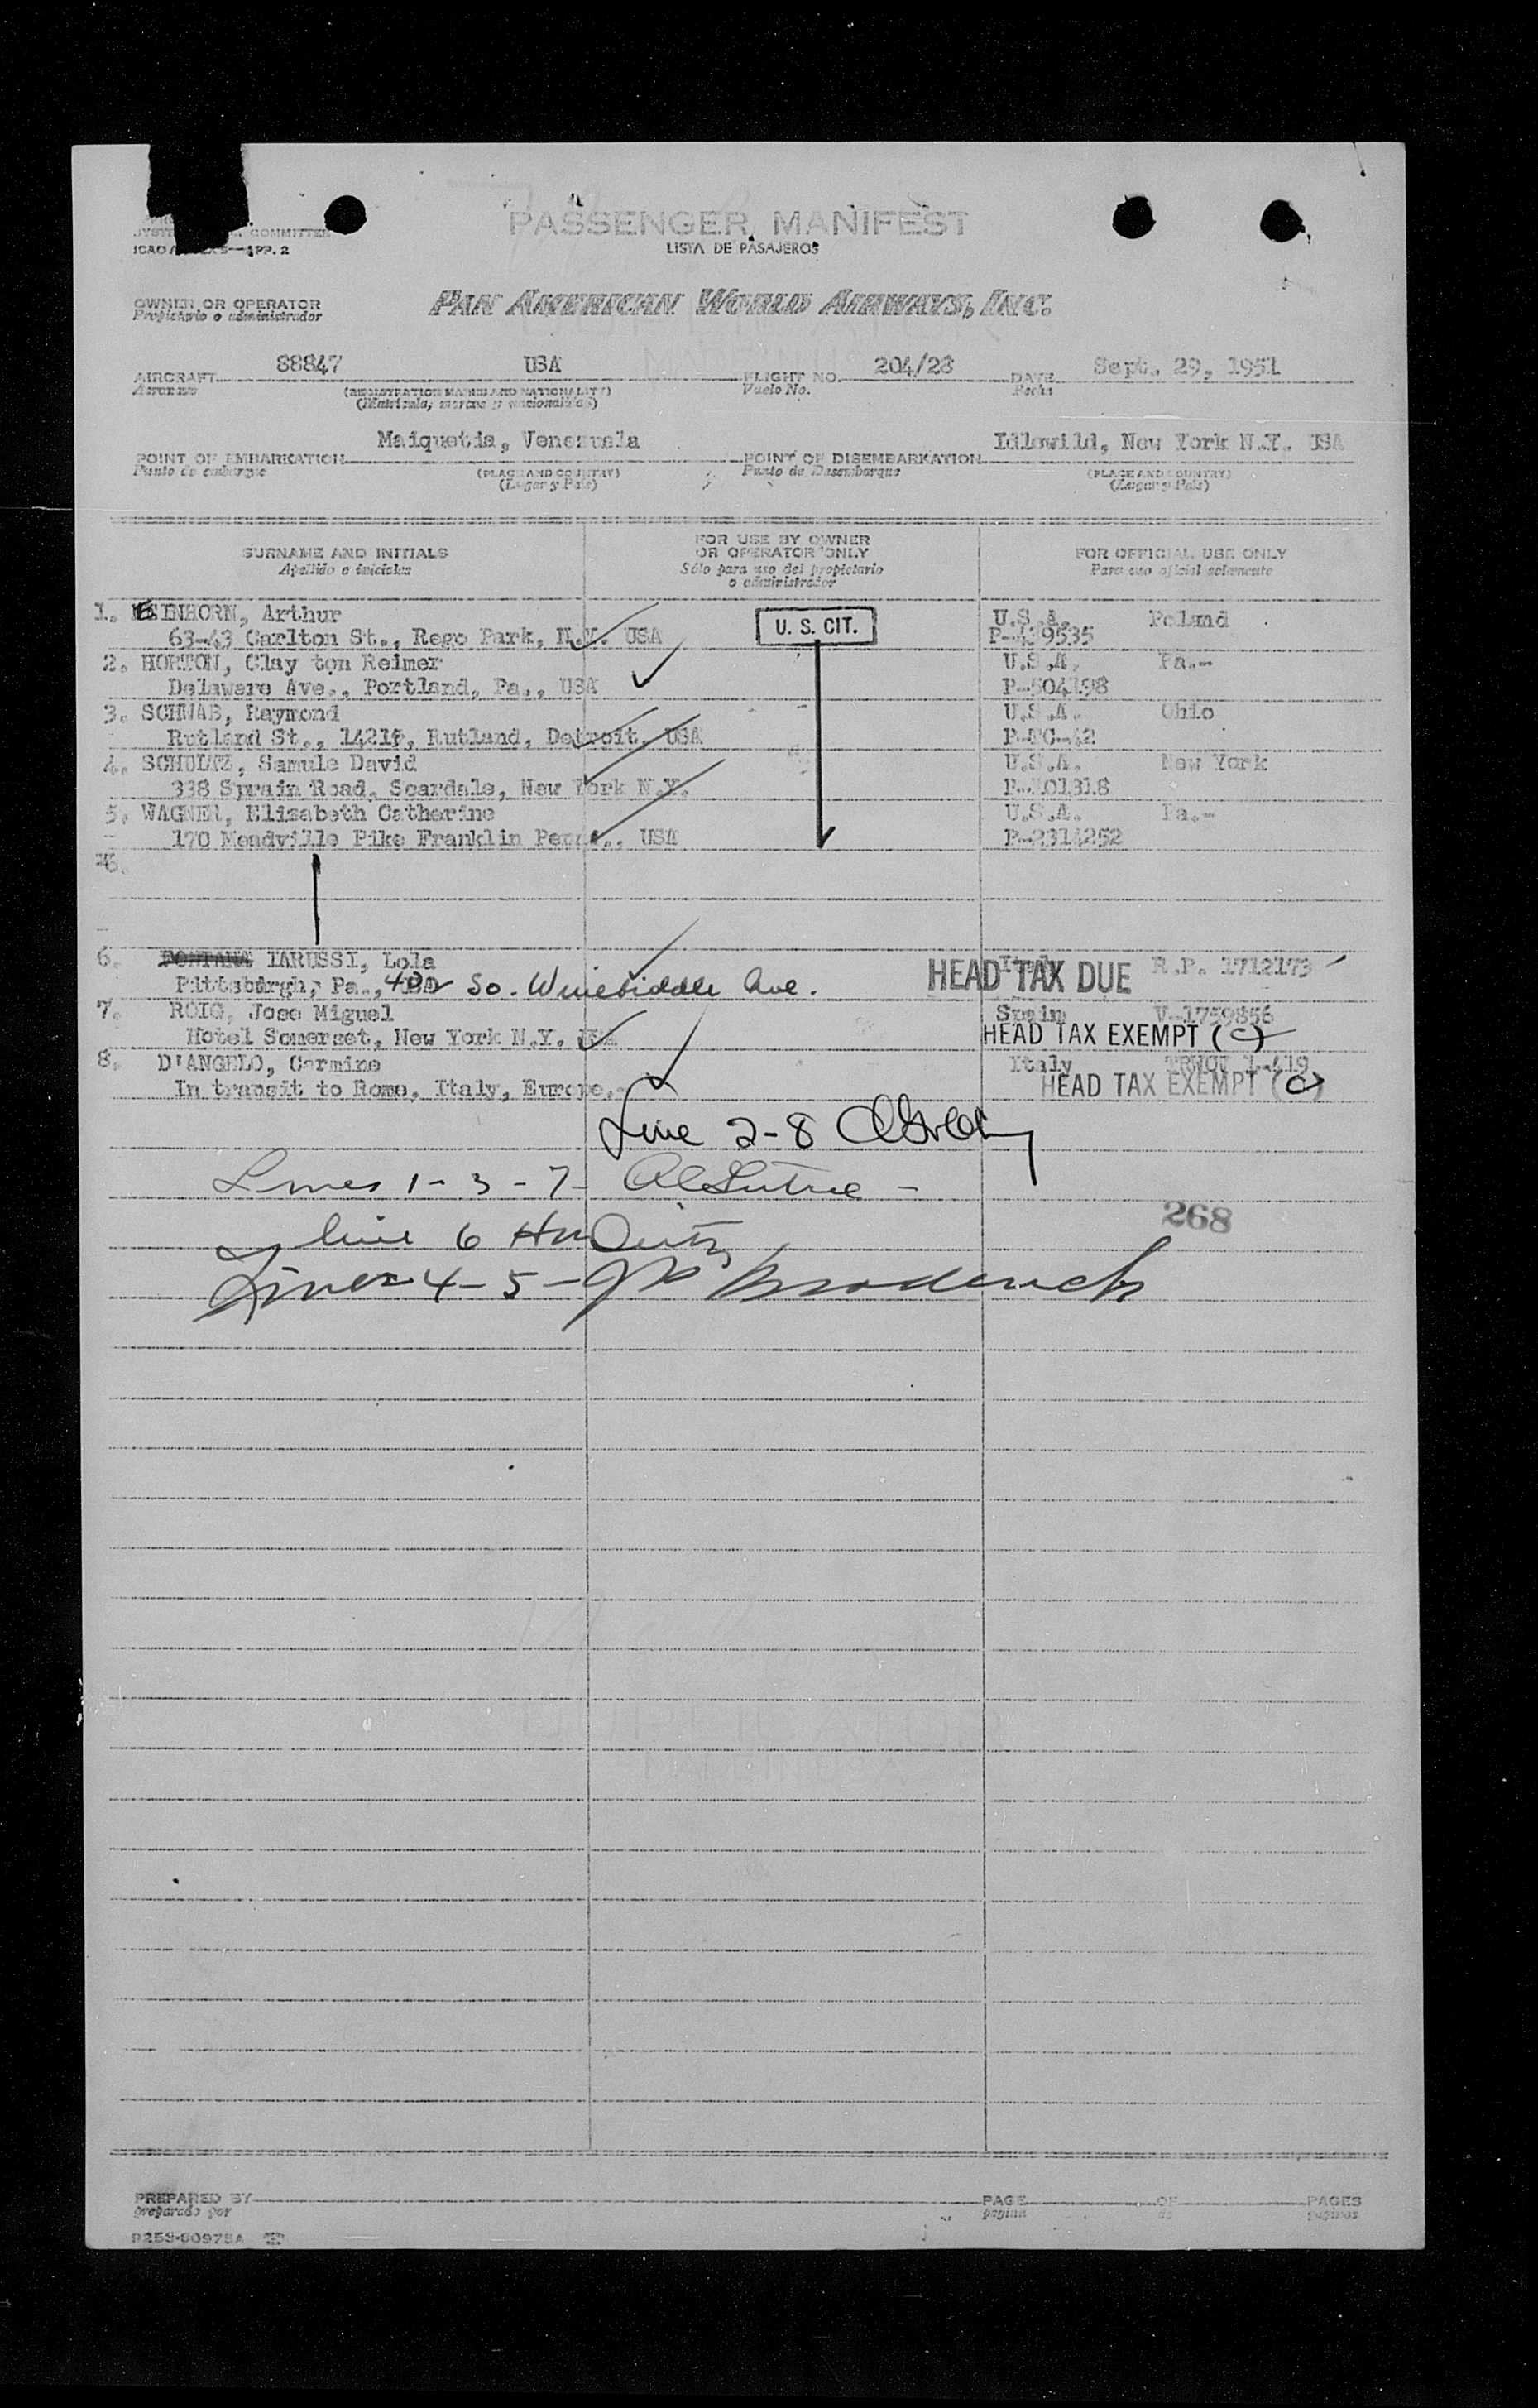 COMMITTEE
ICAO APP. 2
PASSENGER MANIFEST
LISTA DE PASAJEROS
OWNER OR OPERATOR
Propietario o administrador
PAN AMERICAN WORLD AIRWAYS, INC.
AIRCRAFT 88847 USA FLIGHT NO. 204/28 DATE Sept. 29, 1951
Aeronave (REGISTRATION MARKS AND NATIONALITY) Vuelo No. Fecha
(Matrícula, marcas y nacionalidad)
POINT OF EMBARKATION Maiquetia, Venezuela POINT OF DISEMBARKATION Idlewild, New York N.Y. USA
Punto de embarque (PLACE AND COUNTRY) Punto de Desembarque (PLACE AND COUNTRY)
(Lugar y País) (Lugar y País)
SURNAME AND INITIALS FOR USE BY OWNER OR OPERATOR ONLY FOR OFFICIAL USE ONLY
Apellido e iniciales Sólo para uso del propietario o administrador Para uso oficial solamente
1. EINHORN, Arthur U. S. CIT. U.S.A. Poland
63-43 Carlton St., Rego Park, N.Y. USA P-439535
2. HORTON, Clay ton Reimer U.S.A. Pa.-
Delaware Ave., Portland, Pa., USA P-504198
3. SCHWAB, Raymond U.S.A. Ohio
Rutland St., Rutland, Detroit, USA
4. SCHULTZ, Samule David U.S.A. New York
338 Sprain Road, Scardale, New York N.Y.
5. WAGNER, Elizabeth Catherine U.S.A. Pa.-
170 Meadville Pike Franklin Penna., USA P-2314252
6.
6. IARUSSI, Lola Italy R.P. 1712173
Pittsburgh, Pa., So. Winebiddle Ave. HEAD TAX DUE
7. ROIG, Jose Miguel Spain V-1759856
Hotel Somerset, New York N.Y. USA HEAD TAX EXEMPT (C)
8. D'ANGELO, Carmine Italy TRWOV
In transit to Rome, Italy, Europe. HEAD TAX EXEMPT (C)
Line 2-8
Lines 1-3-7
268
line 6
Lines 4-5- Broderick
PREPARED BY PAGE OF PAGES
preparado por pagina de paginas